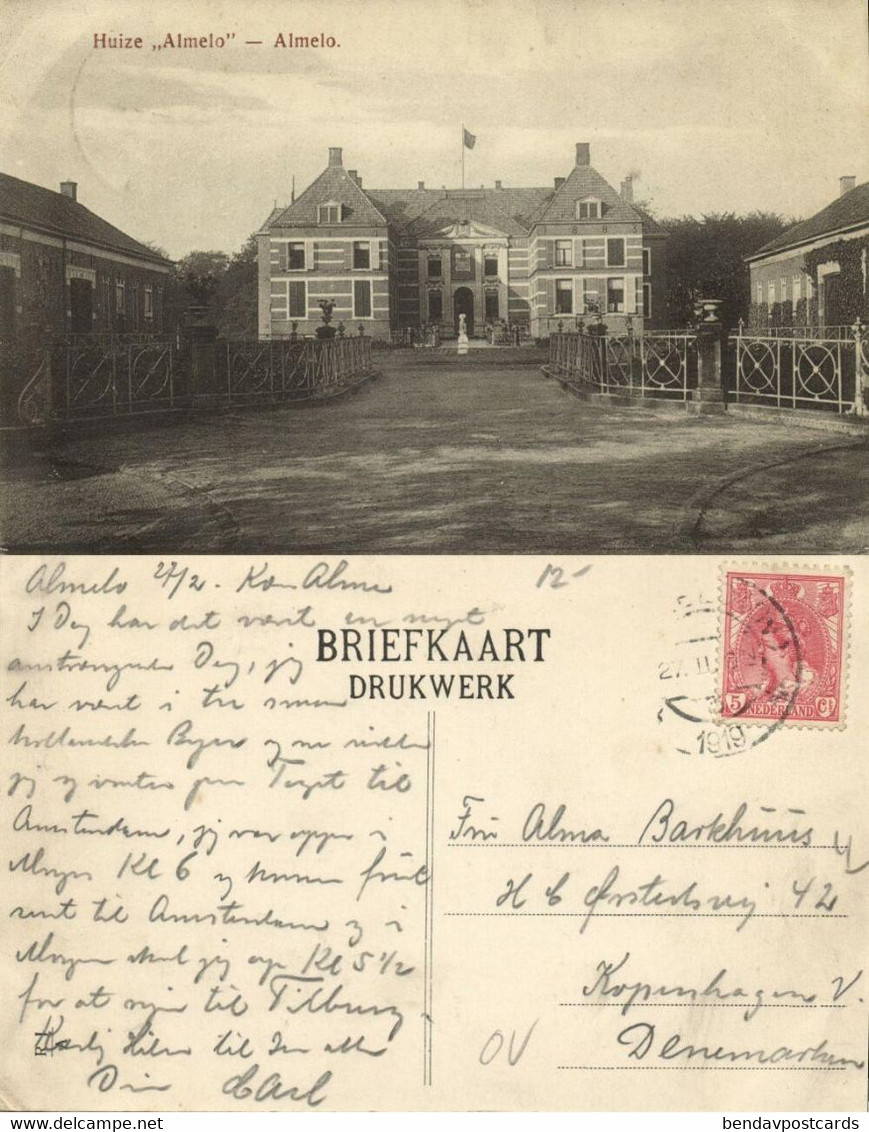 Huize „Almelo" — Almelo.
Almelo 27/2. Kære Alma
I Dag har det været en meget
anstrængende Dag, jeg
har været i tre smaa
hollandske Byer og nu sidder
jeg og venter paa Toget til
Amsterdam, jeg var oppe i
Morges Kl 6 og kommer først
sent til Amsterdam og i
Morgen skal jeg op Kl 5 1/2
for at rejse til Tilburg.
Kærlig Hilsen til Jer alle
Din Carl
12-
BRIEFKAART
DRUKWERK
27. II.
1919
5 Ct
NEDERLAND
Fru Alma Barkhuus
H C Ørstedsvej 42
Kopenhagen V.
Denemarken
OV
bendavpostcards